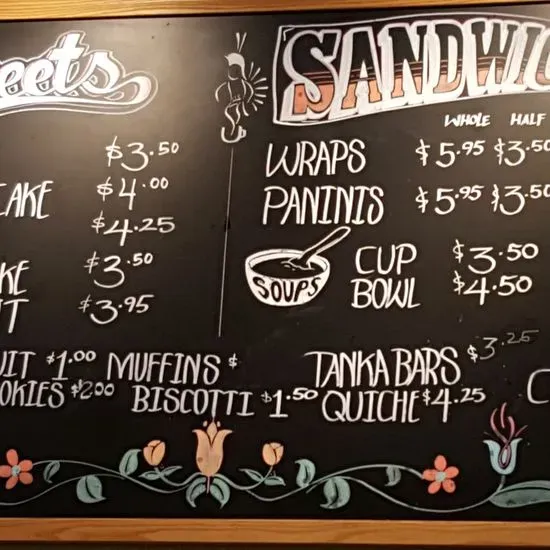 eets
$3.50
CAKE $4.00
$4.25
KE $3.50
T $3.95
SANDWIC
WHOLE HALF
WRAPS $5.95 $3.50
PANINIS $5.95 $3.50
SOUPS
CUP $3.50
BOWL $4.50
UIT $1.00 MUFFINS &
OKIES $2.00 BISCOTTI $1.50
TANKA BARS $3.25
QUICHE $4.25 C